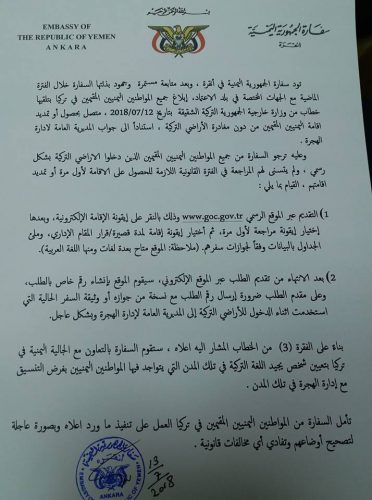 EMBASSY OF
THE REPUBLIC OF YEMEN
ANKARA
سفارة الجمهورية اليمنية
أنقرة
تود سفارة الجمهورية اليمنية في أنقرة ، وبعد متابعة مستمرة وجهود بذلتها السفارة خلال الفترة
الماضية مع الجهات المختصة في بلد الاعتماد، إبلاغ جميع المواطنين اليمنيين المقيمين في تركيا بتلقيها
خطاب من وزارة خارجية الجمهورية التركية الشقيقة بتاريخ 2018/07/12 ، متصل بحصول أو تمديد
اقامة اليمنيين المقيمين من دون مغادرة الأراضي التركية ، استناداً الى جواب المديرية العامة لادارة
الهجرة .
وعليه ترجو السفارة من جميع المواطنين اليمنيين المقيمين الذين دخلوا الاراضي التركية بشكل
رسمي ، ولم يتسنى لهم المراجعة في الفترة القانونية اللازمة للحصول على الاقامة لأول مرة أو تمديد
اقامتهم ، القيام بما يلي :
1) التقديم عبر الموقع الرسمي www.goc.gov.tr وذلك بالنقر على إيقونة الإقامة الإلكترونية، وبعدها
إختيار إيقونة مراجعة لأول مرة، ثم أختيار إيقونة إقامة لمدة قصيرة/قرار المقام الإداري، وملئ
الجداول بالبيانات وفقاً لجوازات سفرهم. (ملاحظة: الموقع متاح بعدة لغات ومنها اللغة العربية).
2) بعد الانتهاء من تقديم الطلب عبر الموقع الإلكتروني، سيقوم الموقع بإنشاء رقم خاص بالطلب،
وعلى مقدم الطلب ضرورة إرسال رقم الطلب مع نسخة من جوازه أو وثيقة السفر الحالية التي
استخدمت اثناء الدخول للأراضي التركية إلى المديرية العامة لإدارة الهجرة وبشكل عاجل.
بناءً على الفقرة (3) من الخطاب المشار اليه اعلاه ، ستقوم السفارة بالتعاون مع الجالية اليمنية في
تركيا بتعيين شخص يجيد اللغة التركية في تلك المدن التي يتواجد فيها المواطنين اليمنيين بغرض التنسيق
مع إدارة الهجرة في تلك المدن .
تأمل السفارة من المواطنين اليمنيين المقيمين في تركيا العمل على تنفيذ ما ورد اعلاه وبصورة عاجلة
لتصحيح أوضاعهم وتفادي أي مخالفات قانونية .
ANKARA
13
7
2018